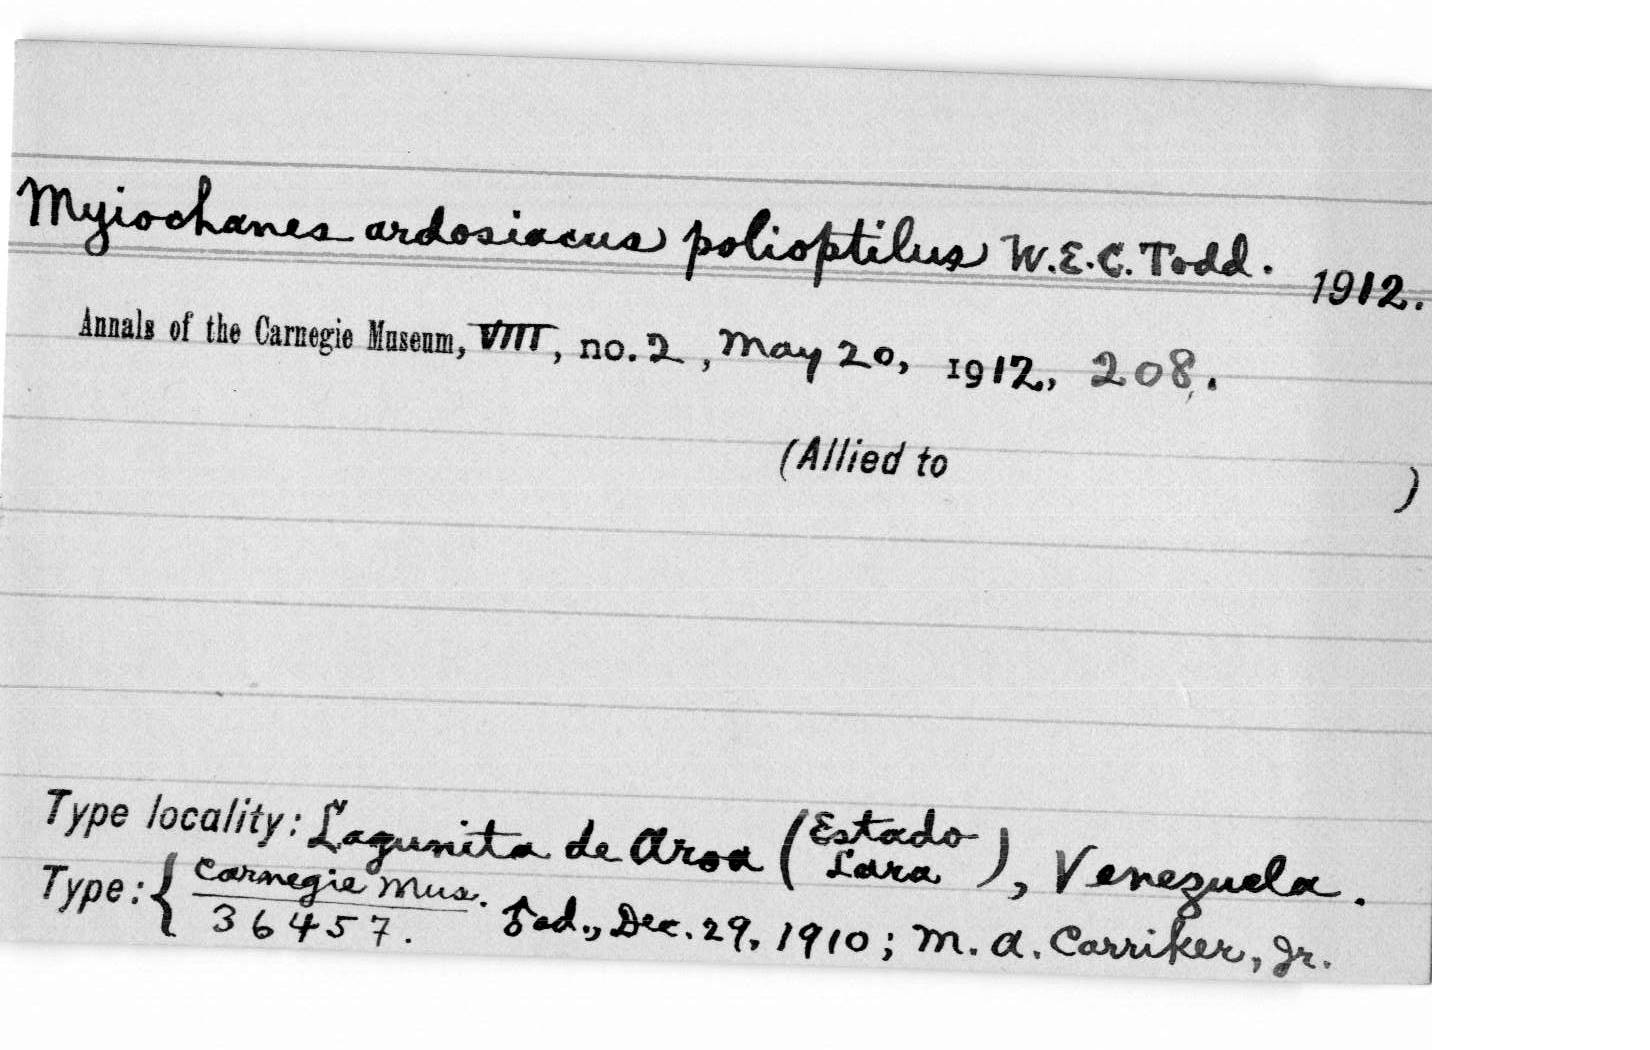 Myiochanes ardosiacus polioptilus W.E.C. Todd. 1912.
Annals of the Carnegie Museum, VIII, no. 2, May 20, 1912, 208.
(Allied to )
Type locality: Lagunita de Aroa (Estado Lara), Venezuela.
Type: { Carnegie Mus. 36457. ad., Dec. 29, 1910; M. A. Carriker, Jr.